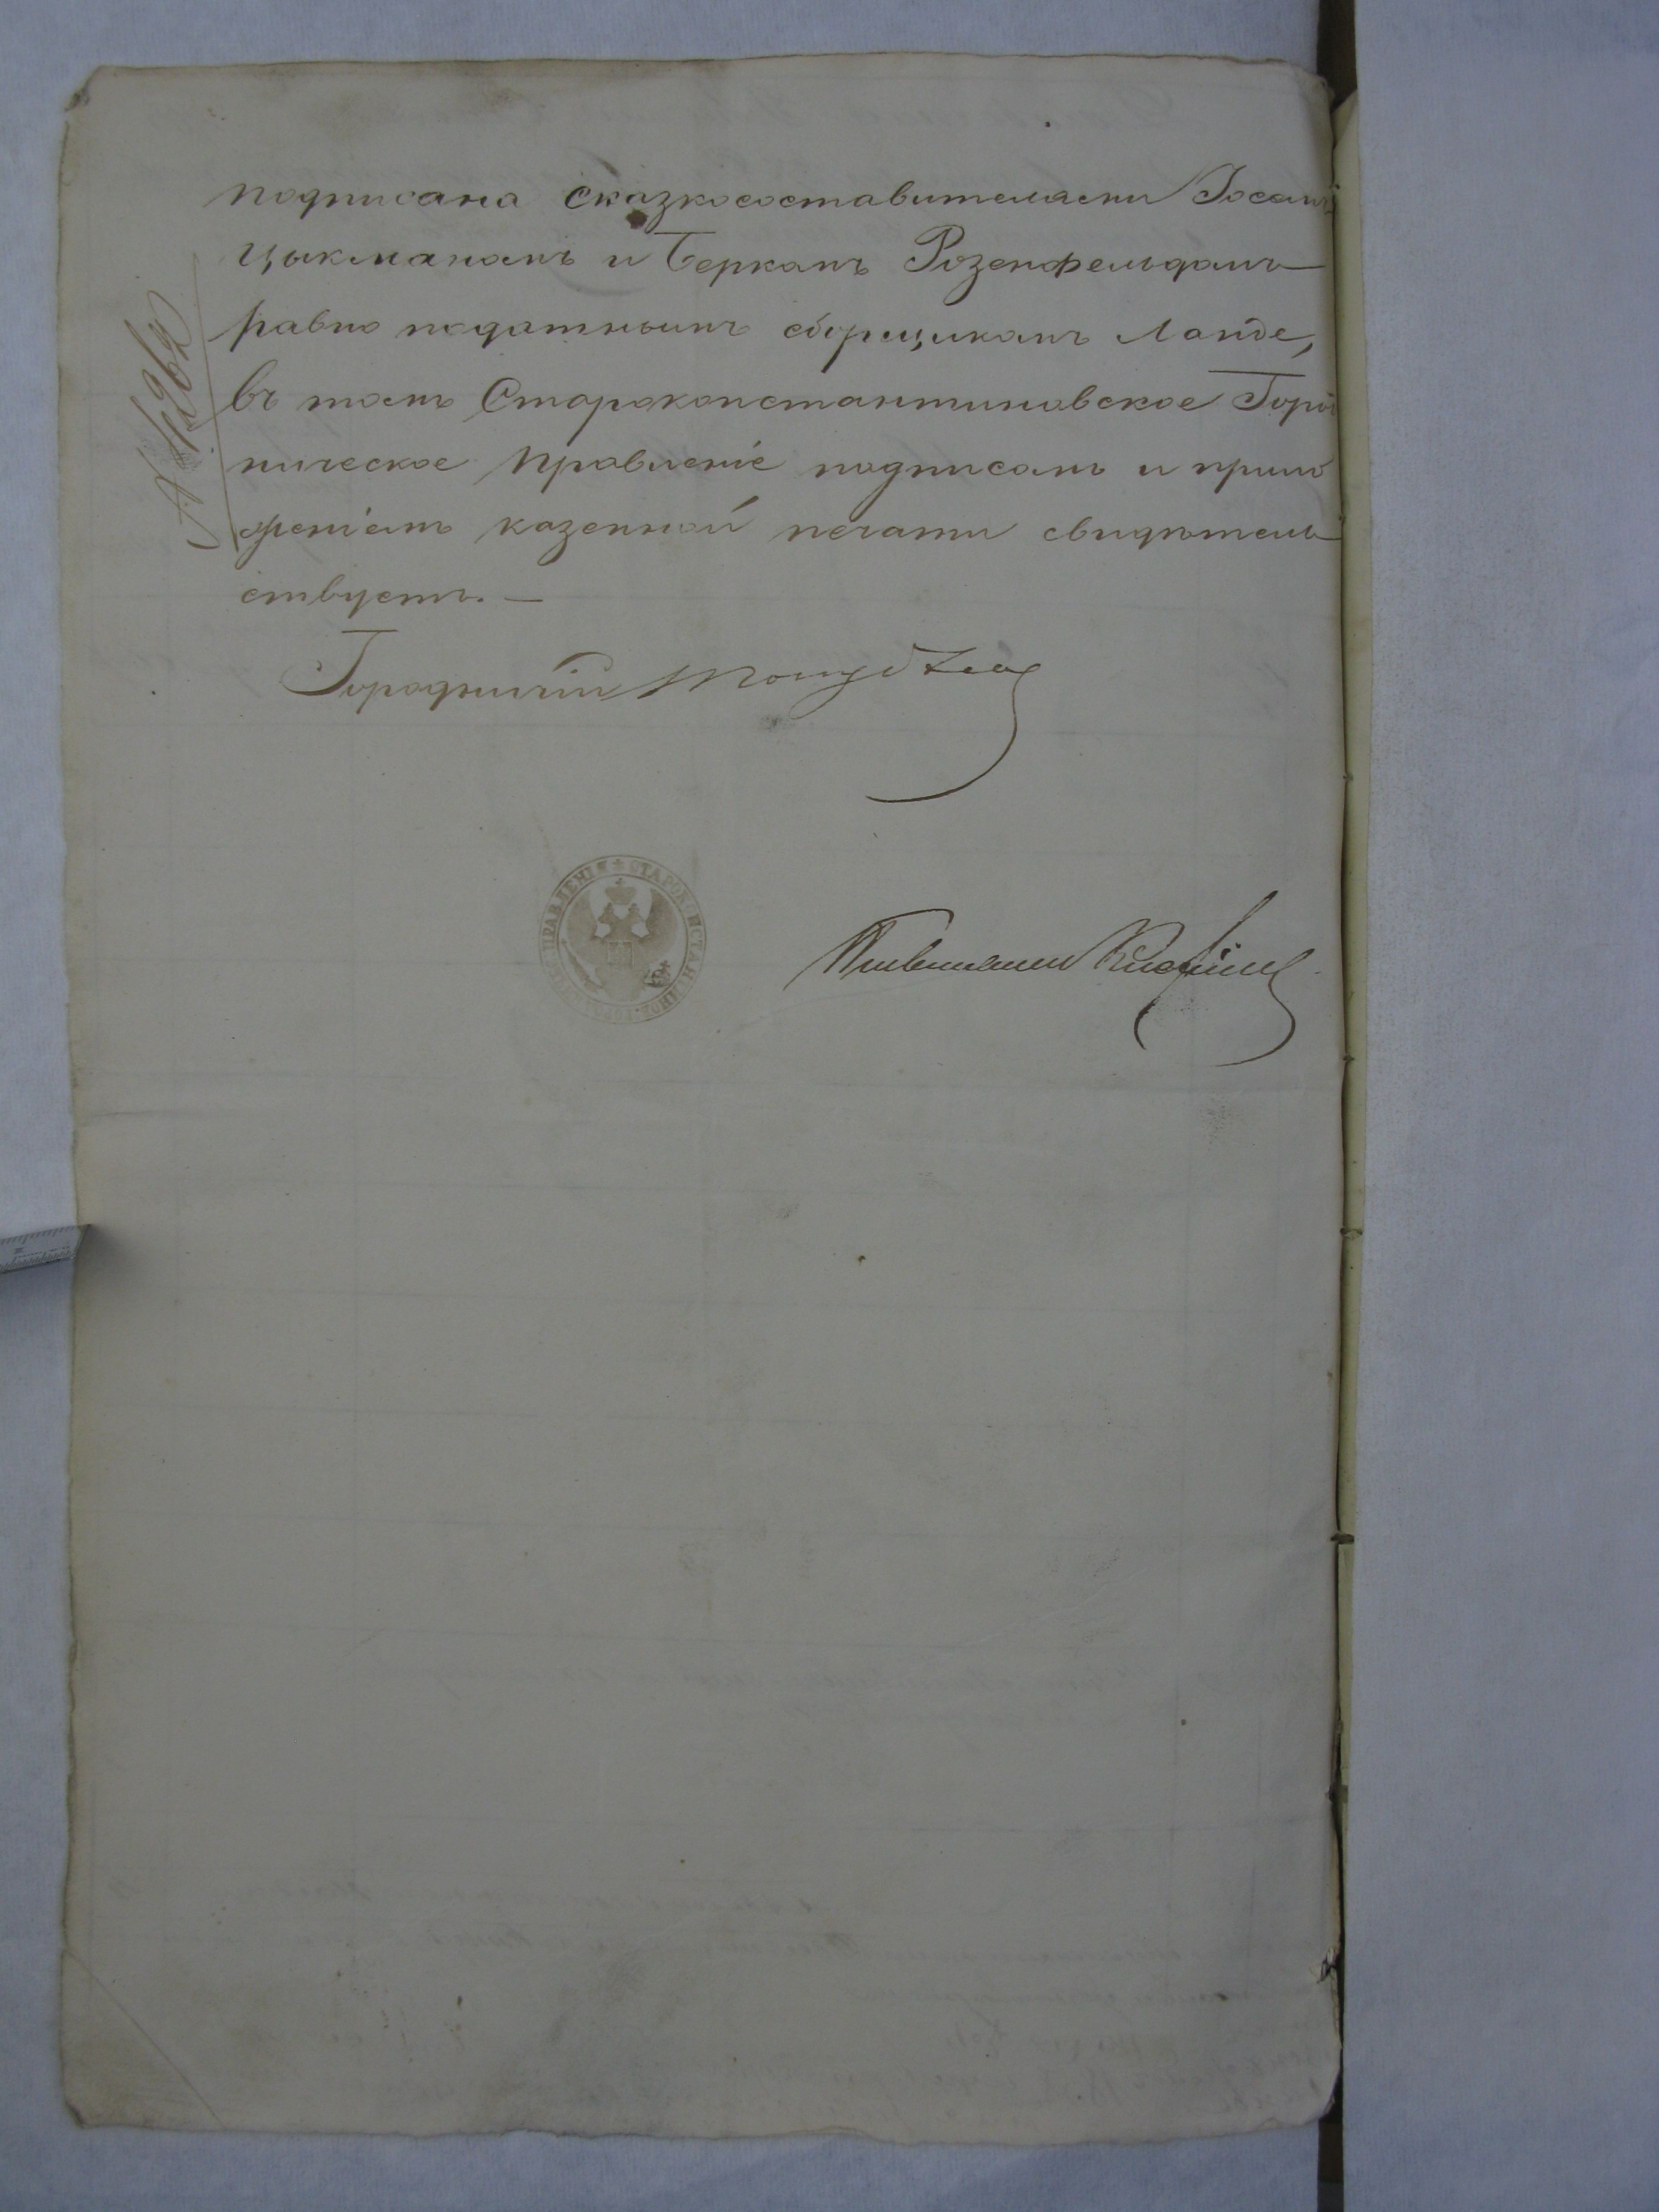 подписана сказкосоставителями Іосем
Цыкманомъ и Беркомъ Розенфельдомъ
равно податнымъ сборщикомъ Ланде,
въ томъ Староконстантиновское Город
ническое Правленіе подписомъ и прило
женіемъ казенной печати свидѣтель
ствуетъ. —
Городничій
№
СТАРОКОНСТАНТИНОВ ПРАВЛЕНІЯ
Письмоводитель